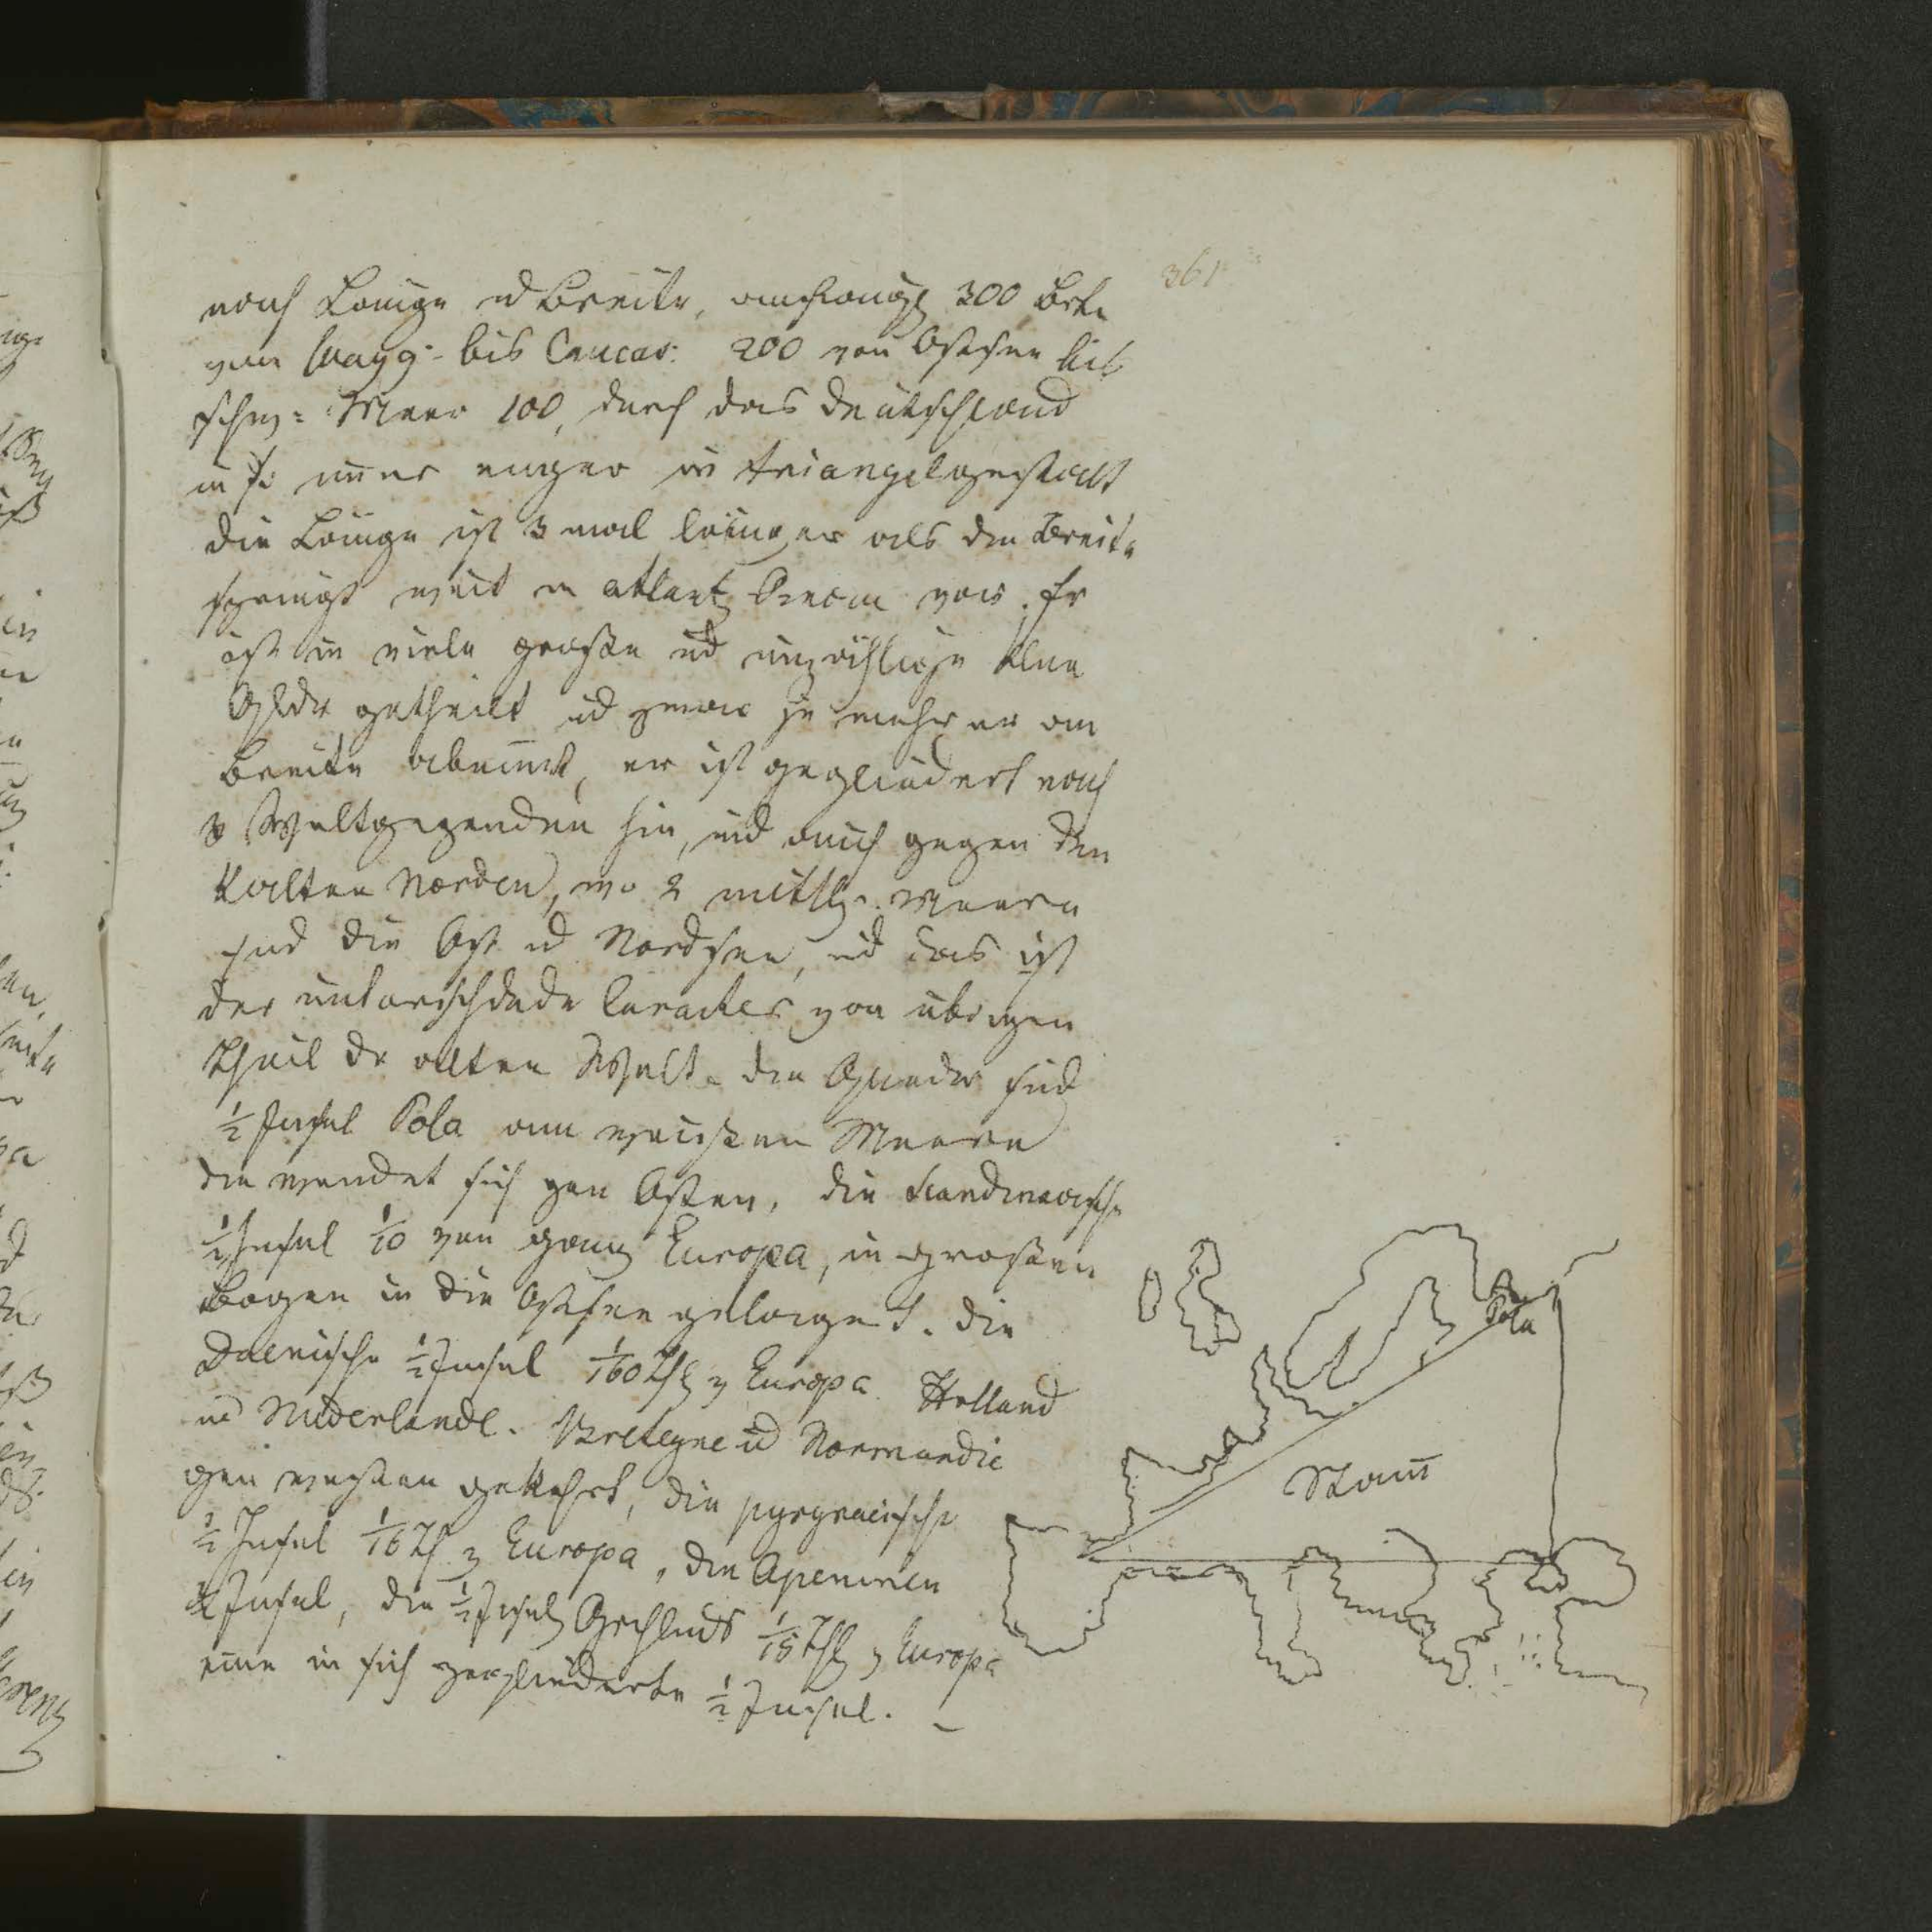 361
nach Länge ud Breite, anfangs 300 Brte
vom Wayg- bis Caucas: 200 von Ostsee bis
schw: Meer 100, durch das Deutschland
u so im̄er enger in triangelgestalt
die Länge ist 3 mal länger als die Breite
springt weit in atlant Ocean vor. Er
ist in viele große ud unzählige klne
Gldr getheilt ud zwar je mehr er an
Breite abnim̄t, er ist gegliedert nach
3 Weltgegenden hin, ud auch gegen den
kalten Norden, wo 2 mittlr. Meere
sind die Ost ud Nordsee, ud das ist
der unterschdnde Caracter von übrigen
Theil dr alten Welt. die Glieder sind
½ Insel Kola am weißen Meere
die wendet sich gen Osten, die Scandinavische
½ Insel 1/10 von ganz Europa, in großem
Bogen in die Ostsee gelagert. die
Daenische ½ Insel 1/160 Thl v Europa Holland
ud Niderlande. Bretagne ud Normandie
gen westen gekehrt, die pyrynaeische
½ Insel 1/16 Th. v Europa, die Apeninen
½ Insel, die ½ Insel Grchlnds 1/15 Thl v Europa
eine in sich gegliederte ½ Insel. –
Kola
Stam̄